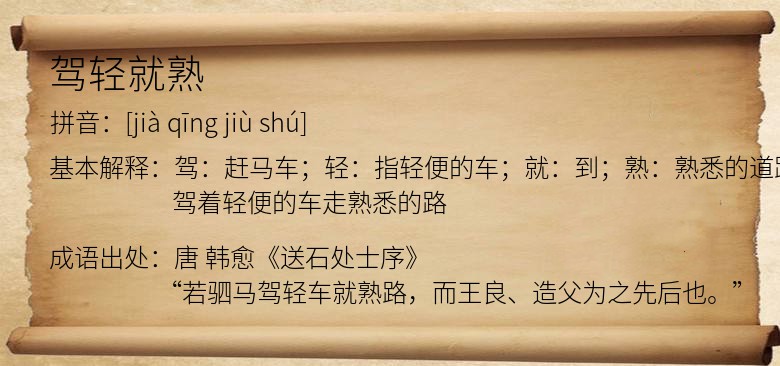 驾轻就熟
拼音：[jià qīng jiù shú]
基本解释：驾：赶马车；轻：指轻便的车；就：到；熟：熟悉的道路
驾着轻便的车走熟悉的路
成语出处：唐 韩愈《送石处士序》
“若驷马驾轻车就熟路，而王良、造父为之先后也。”